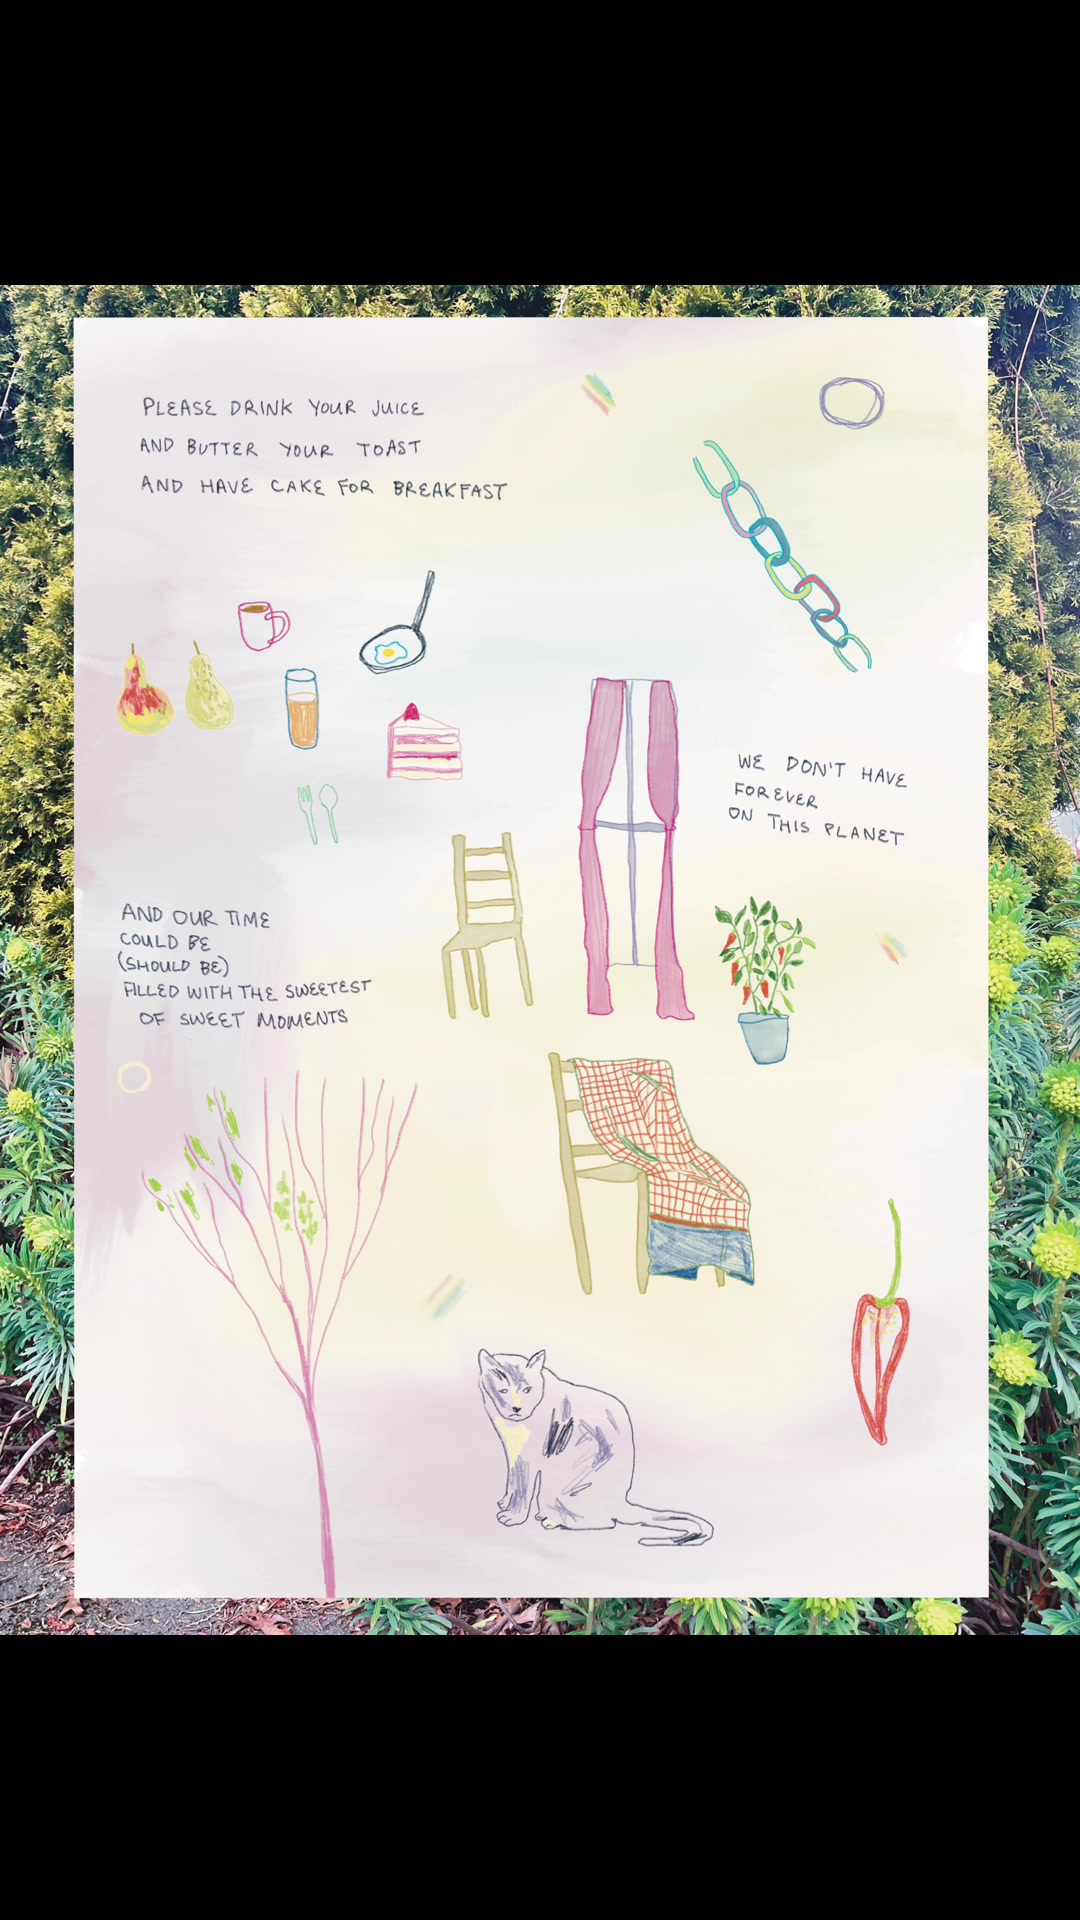 PLEASE DRINK YOUR JUICE
AND BUTTER YOUR TOAST
AND HAVE CAKE FOR BREAKFAST
WE DON'T HAVE
FOREVER
ON THIS PLANET
AND OUR TIME
COULD BE
(SHOULD BE)
FILLED WITH THE SWEETEST
OF SWEET MOMENTS